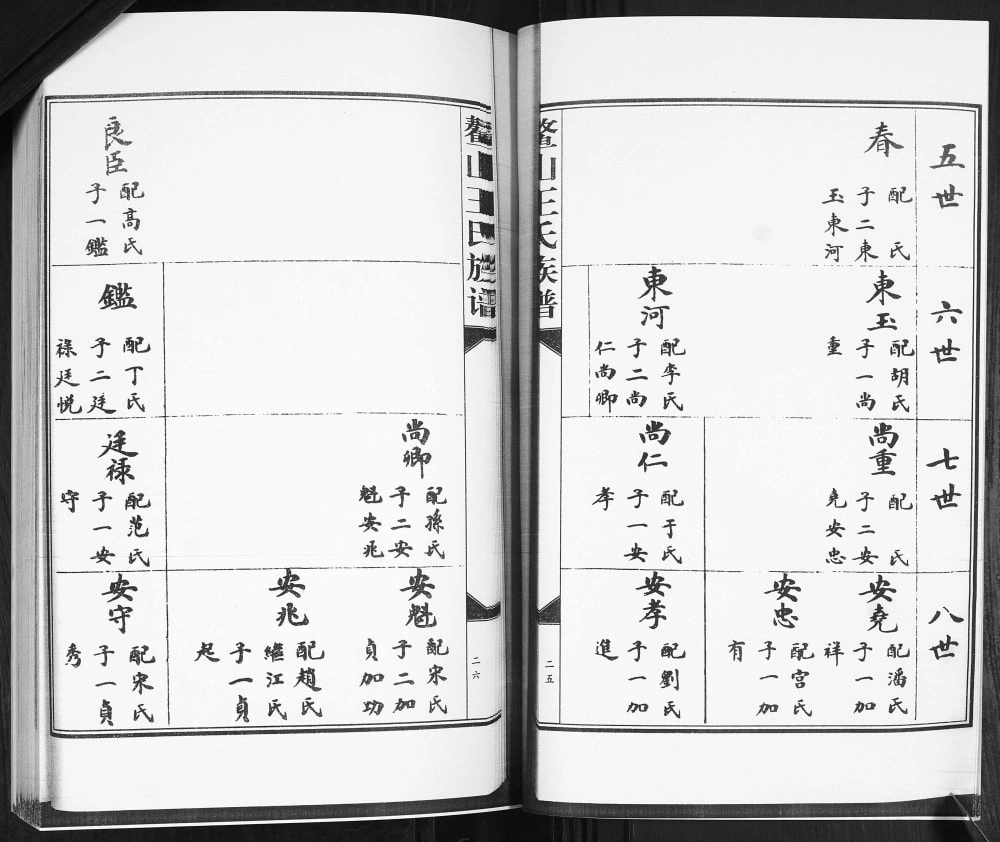 五世
春
配 氏
子二東
玉東河
六世
東玉
配胡氏
子一尚
重
東河
配李氏
子二尚
仁尚卿
七世
尚重
配 氏
子二安
堯安忠
尚仁
配于氏
子一安
孝
八世
安堯
配潘氏
子一加
祥
安忠
配宮氏
子一加
有
安孝
配劉氏
子一加
進
鳌山王氏族谱
二五
鳌山王氏族谱
二六
尚卿
配孫氏
子二安
魁安兆
安魁
配宋氏
子二加
貞加功
安兆
配趙氏
繼江氏
子一貞
起
良臣
配高氏
子一鑑
鑑
配丁氏
子二廷
祿廷悅
廷禄
配范氏
子一安
守
安守
配宋氏
子一貞
秀